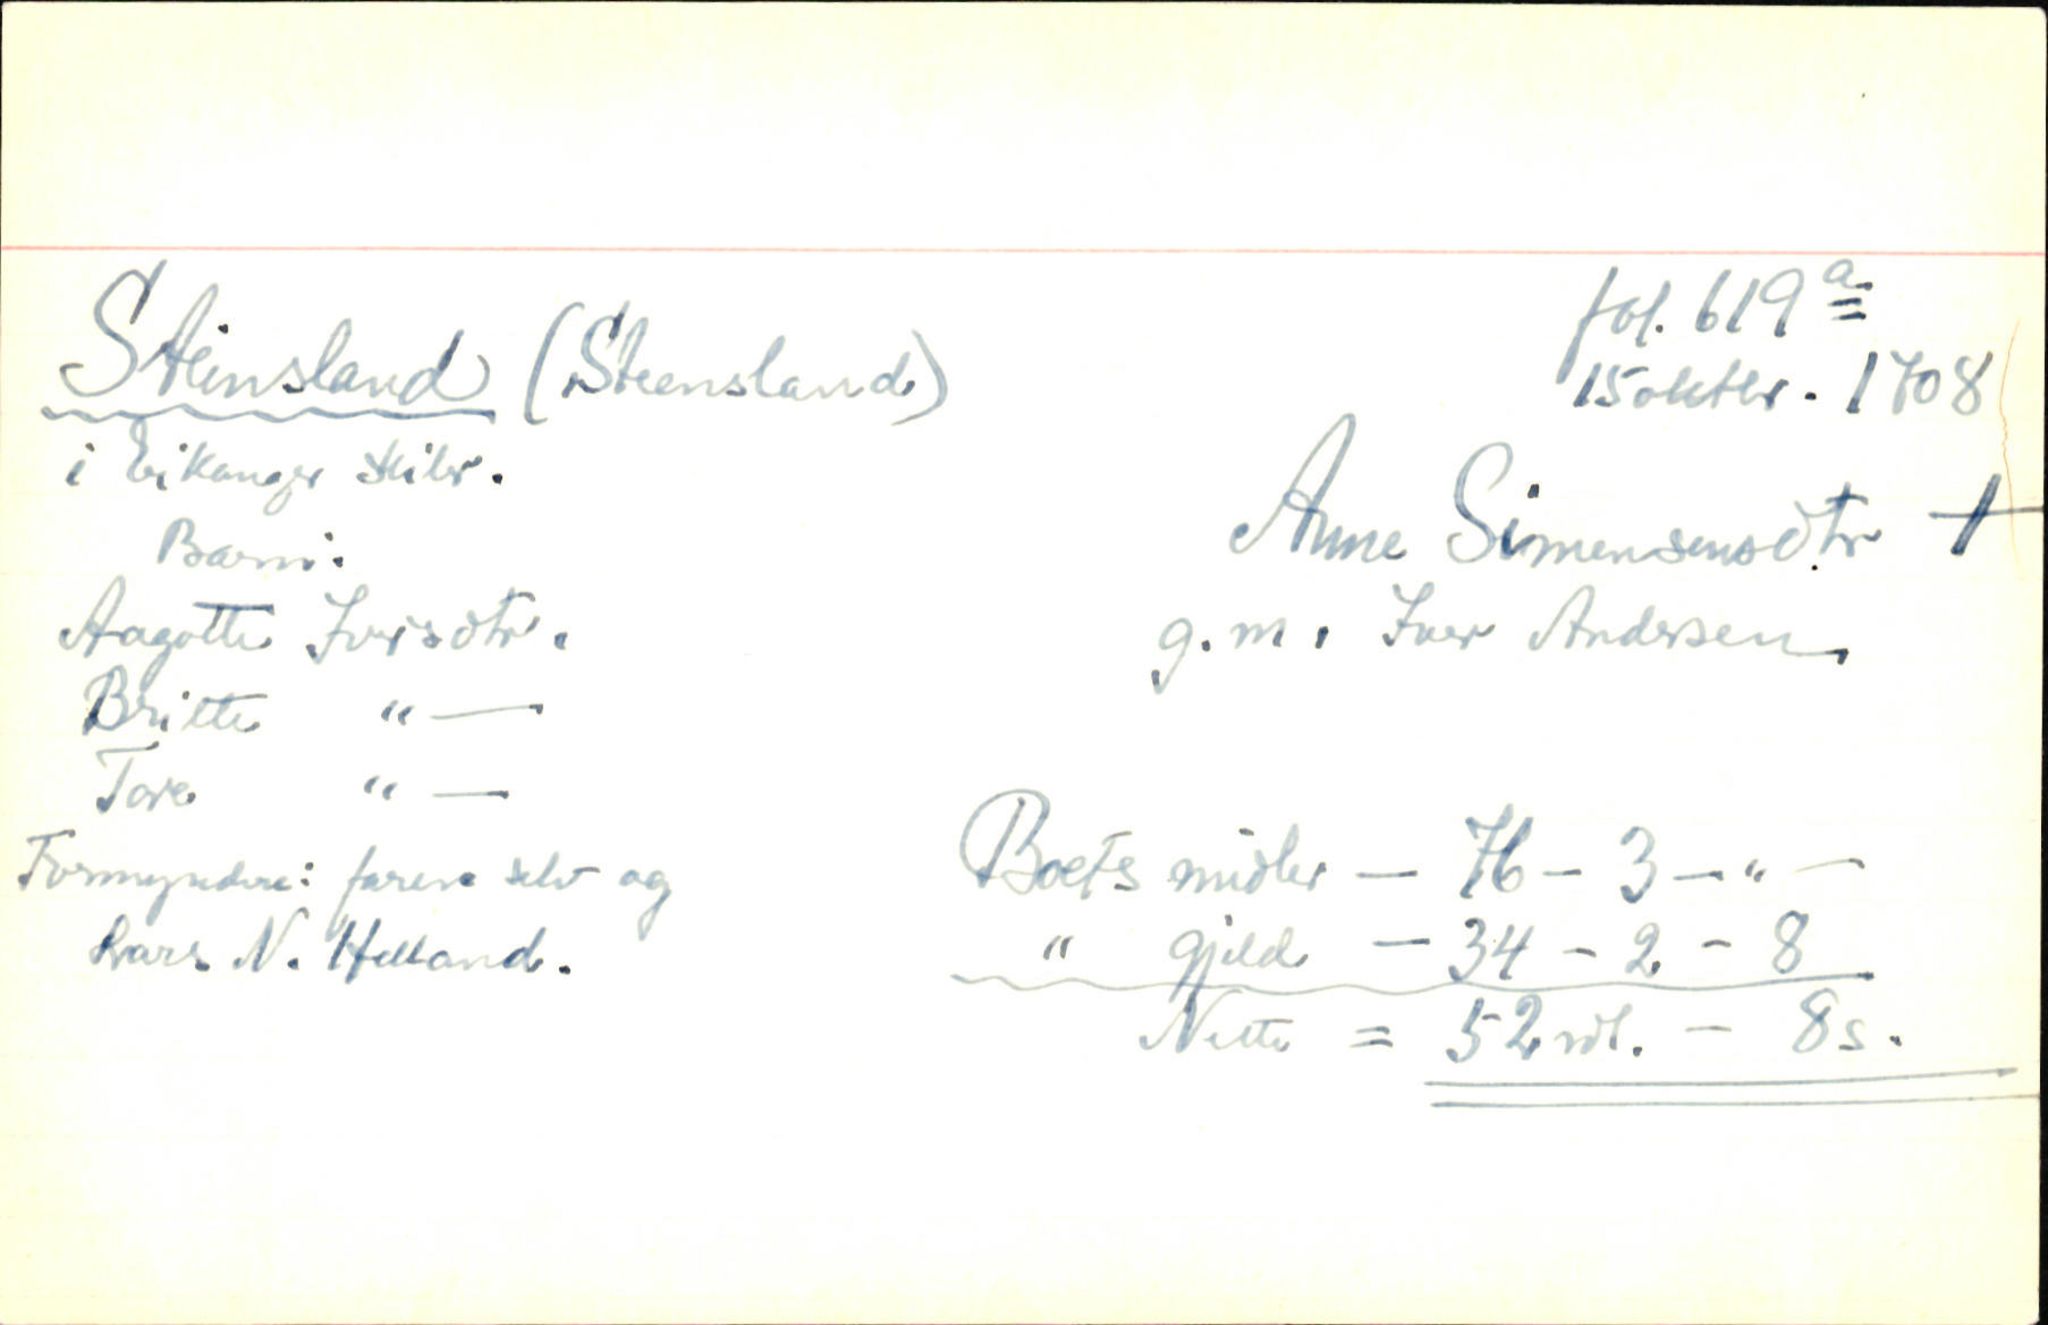 Steinsland (Steensland)
i Eikanger skibr.
Barn:
Aagotte Iversdtr.
Britte " —
Tore " —
Formyndere: faren selv og
Lars N. Helland.
fol. 619 a
15 oktbr. 1708
Anne Simensensdtr +
g. m. Iver Andersen
Boets midler — 76 – 3 – " –
" gjeld — 34 – 2 – 8
Netto = 52 rdl. – 8 s.